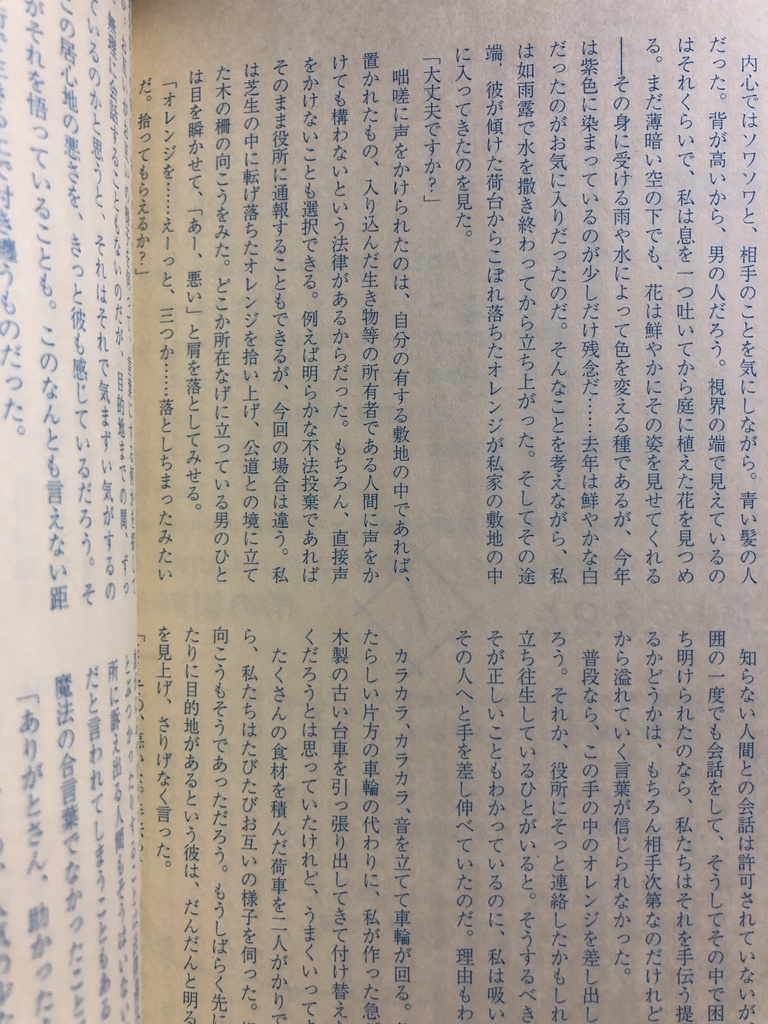 内心ではソワソワと、相手のことを気にしながら。青い髪の人
だった。背が高いから、男の人だろう。視界の端で見えているの
はそれくらいで、私は息を一つ吐いてから庭に植えた花を見つめ
る。まだ薄暗い空の下でも、花は鮮やかにその姿を見せてくれる
――その身に受ける雨や水によって色を変える種であるが、今年
は紫色に染まっているのが少しだけ残念だ……去年は鮮やかな白
だったのがお気に入りだったのだ。そんなことを考えながら、私
は如雨露で水を撒き終わってから立ち上がった。そしてその途
端、彼が傾けた荷台からこぼれ落ちたオレンジが私家の敷地の中
に入ってきたのを見た。
「大丈夫ですか？」
咄嗟に声をかけられたのは、自分の有する敷地の中であれば、
置かれたもの、入り込んだ生き物等の所有者である人間に声をか
けても構わないという法律があるからだった。もちろん、直接声
をかけないことも選択できる。例えば明らかな不法投棄であれば
そのまま役所に通報することもできるが、今回の場合は違う。私
は芝生の中に転げ落ちたオレンジを拾い上げ、公道との境に立て
た木の柵の向こうをみた。どこか所在なげに立っている男のひと
は目を瞬かせて、「あー、悪い」と肩を落としてみせる。
「オレンジを……えーっと、三つか……落としちまったみたい
だ。拾ってもらえるか？」
知らない人間との会話は許可されていないが
囲の一度でも会話をして、そうしてその中で困
ち明けられたのなら、私たちはそれを手伝う提
るかどうかは、もちろん相手次第なのだけれど
から溢れていく言葉が信じられなかった。
普段なら、この手の中のオレンジを差し出し
ろう。それか、役所にそっと連絡したかもしれ
立ち往生しているひとがいると。そうするべき
そが正しいこともわかっているのに、私は吸い
その人へと手を差し伸べていたのだ。理由もわ
カラカラ、カラカラ、音を立てて車輪が回る。
たらしい片方の車輪の代わりに、私が作った急
木製の古い台車を引っ張り出してきて付け替え
くだろうとは思っていたけれど、うまくいって
たくさんの食材を積んだ荷車を二人がかりで
ら、私たちはたびたびお互いの様子を伺った。
向こうもそうであっただろう。もうしばらく先に
たりに目的地があるという彼は、だんだんと明る
を見上げ、さりげなく言った。
無理に会話することもないのだが、目的地までの間、ずっ
ているのかと思うと、それはそれで気まずい気がするの
この居心地の悪さを、きっと彼も感じているだろう。そ
がそれを悟っていることも。このなんとも言えない距
付き纏うものだった。
所に訴え出る人間もそうはいない
だと言われてしまうこともある
魔法の合言葉でなかったこと
「ありがとさん、助かった